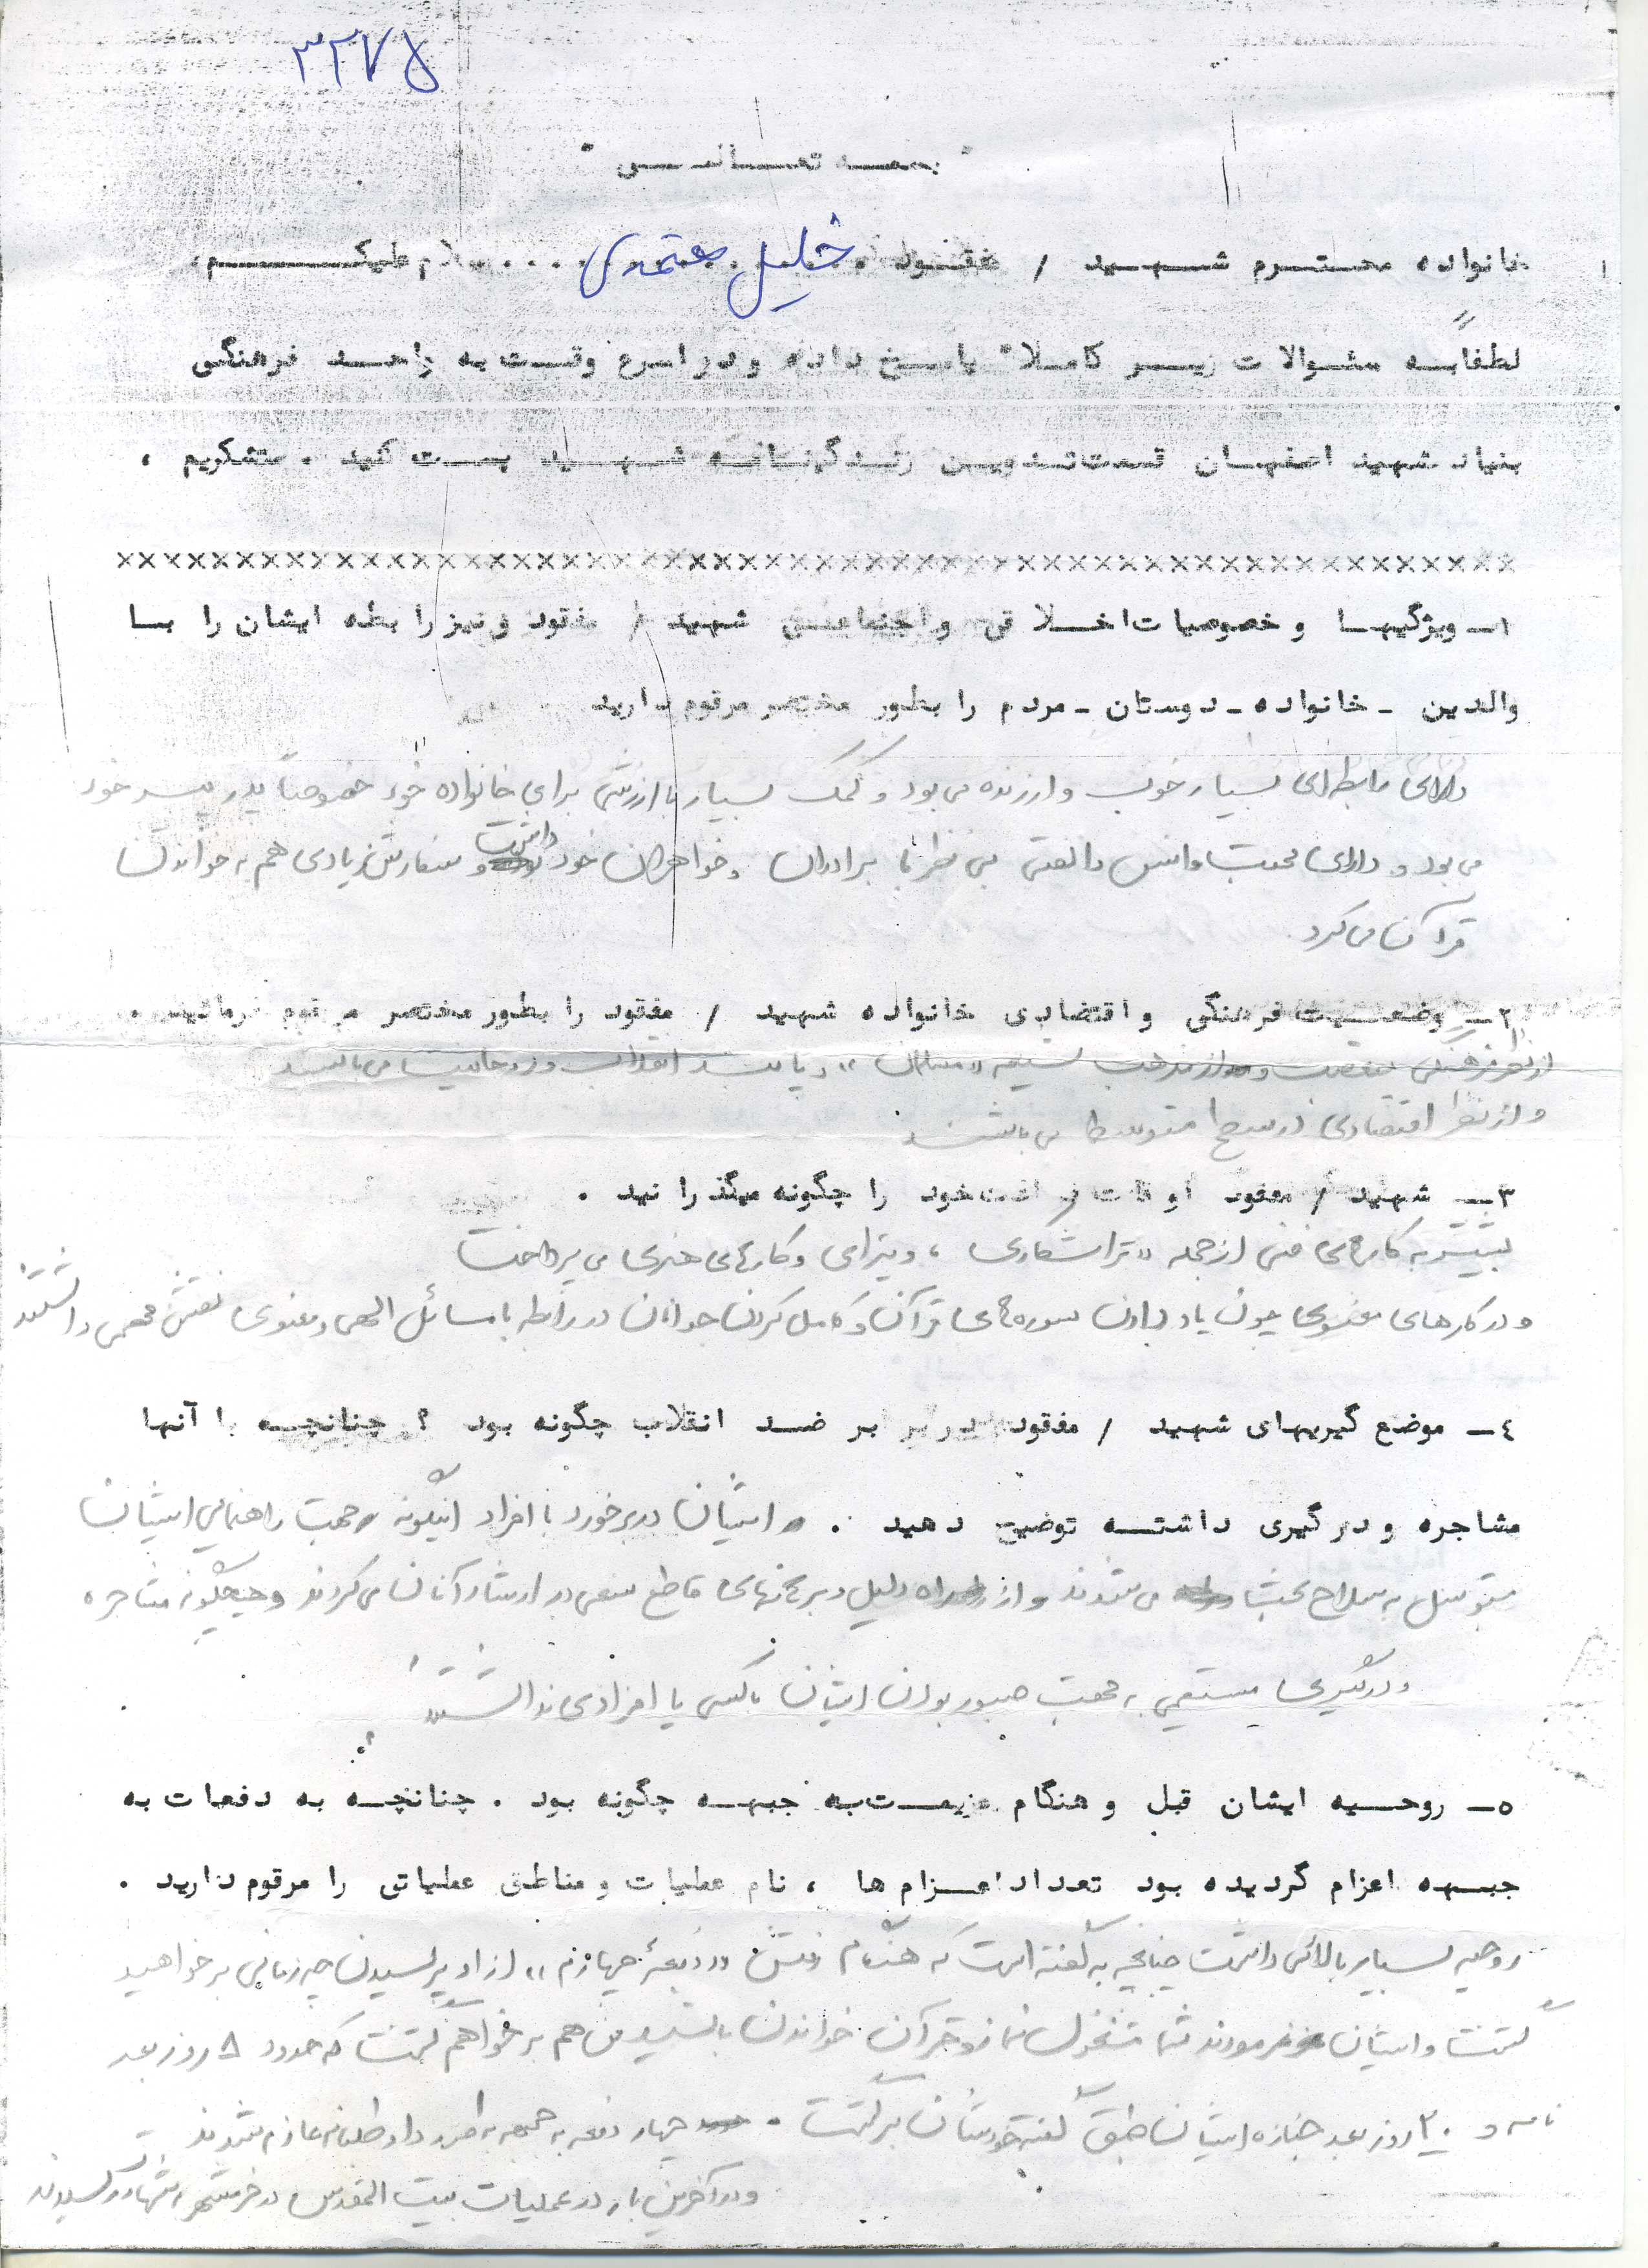 ۳۲۷۵
" بسمه تعالی "
خانواده محترم شهید / مفقود خلیل معتمدی سلام علیکم،
لطفا به سئوالات زیر کاملا" پاسخ داده و در اسرع وقت به واحد فرهنگی
بنیاد شهید اصفهان قسمت تدوین زندگینامه شهید پست کنید . متشکریم ،
××××××××××××××××××××××××××××××××××××××××××××××××××××××
۱ـ ویژگیها و خصوصیات اخلاقی و اجتماعی شهید / مفقود و نیز رابطه ایشان را با
والدین ـ خانواده ـ دوستان ـ مردم را بطور مختصر مرقوم دارید
دارای رابطه‌ای بسیار خوب و ارزنده می‌بود و کمک بسیار با ارزشی برای خانواده خود خصوصاً پدر پیر خود
می‌بود و دارای محبت و انس و الفتی بی نظیر با برادران و خواهران خود داشت و سفارش زیادی هم به خواندن
قرآن می‌کرد
۲ـ وضعیت فرهنگی و اقتصادی خانواده شهید / مفقود را بطور مختصر مرقوم فرمائید .
از نظر فرهنگی و از مذهب «مسلمان» و پایبند انقلاب و روحانیت می‌باشند
و از نظر اقتصادی در سطح متوسط می‌باشند
۳ـ شهید / مفقود اوقات فراغت خود را چگونه میگذرانید .
بیشتر به کارهای فنی از جمله «تراشکاری ، ویترای و کارهای هنری می‌پرداخت
و در کارهای معنوی چون یاد دادن سوره‌های قرآن و کامل کردن جوانان در رابطه با مسائل الهی و معنوی نقش مهمی داشتند
٤ـ موضع گیریهای شهید / مفقود در برابر ضد انقلاب چگونه بود ؟ چنانچه با آنها
مشاجره و درگیری داشته توضیح دهید . ایشان در برخورد با افراد اینگونه جهت راهنمایی ایشان
متوسل به سلاح بحث می‌شدند و از راه دلیل و برهانهای قاطع سعی در ارشاد آنان می‌کردند و هیچگونه مشاجره
و درگیری مستقیمی به جهت صبور بودن ایشان با کسی یا افرادی نداشتند
٥ـ روحیه ایشان قبل و هنگام عزیمت به جبهه چگونه بود . چنانچه به دفعات به
جبهه اعزام گردیده بود تعداد اعزام ها ، نام عملیات و مناطق عملیاتی را مرقوم دارید .
روحیه بسیار بالائی داشت چنانچه به گفته است که هنگام رفتن «دفعهٔ چهارم» از او پرسیدن چه زمانی بر خواهید
گشت و ایشان فرمودند شما مشغول نماز و قرآن خواندن باشید من هم بر خواهم گشت که حدود ۸ روز بعد
نامه و ۲۰ روز بعد جنازه ایشان طبق گفته خودشان برگشت . چهار دفعه به جبهه بطور داوطلبانه عازم شدند
و در آخرین بار در عملیات بیت المقدس در خرمشهر به شهادت رسیدند